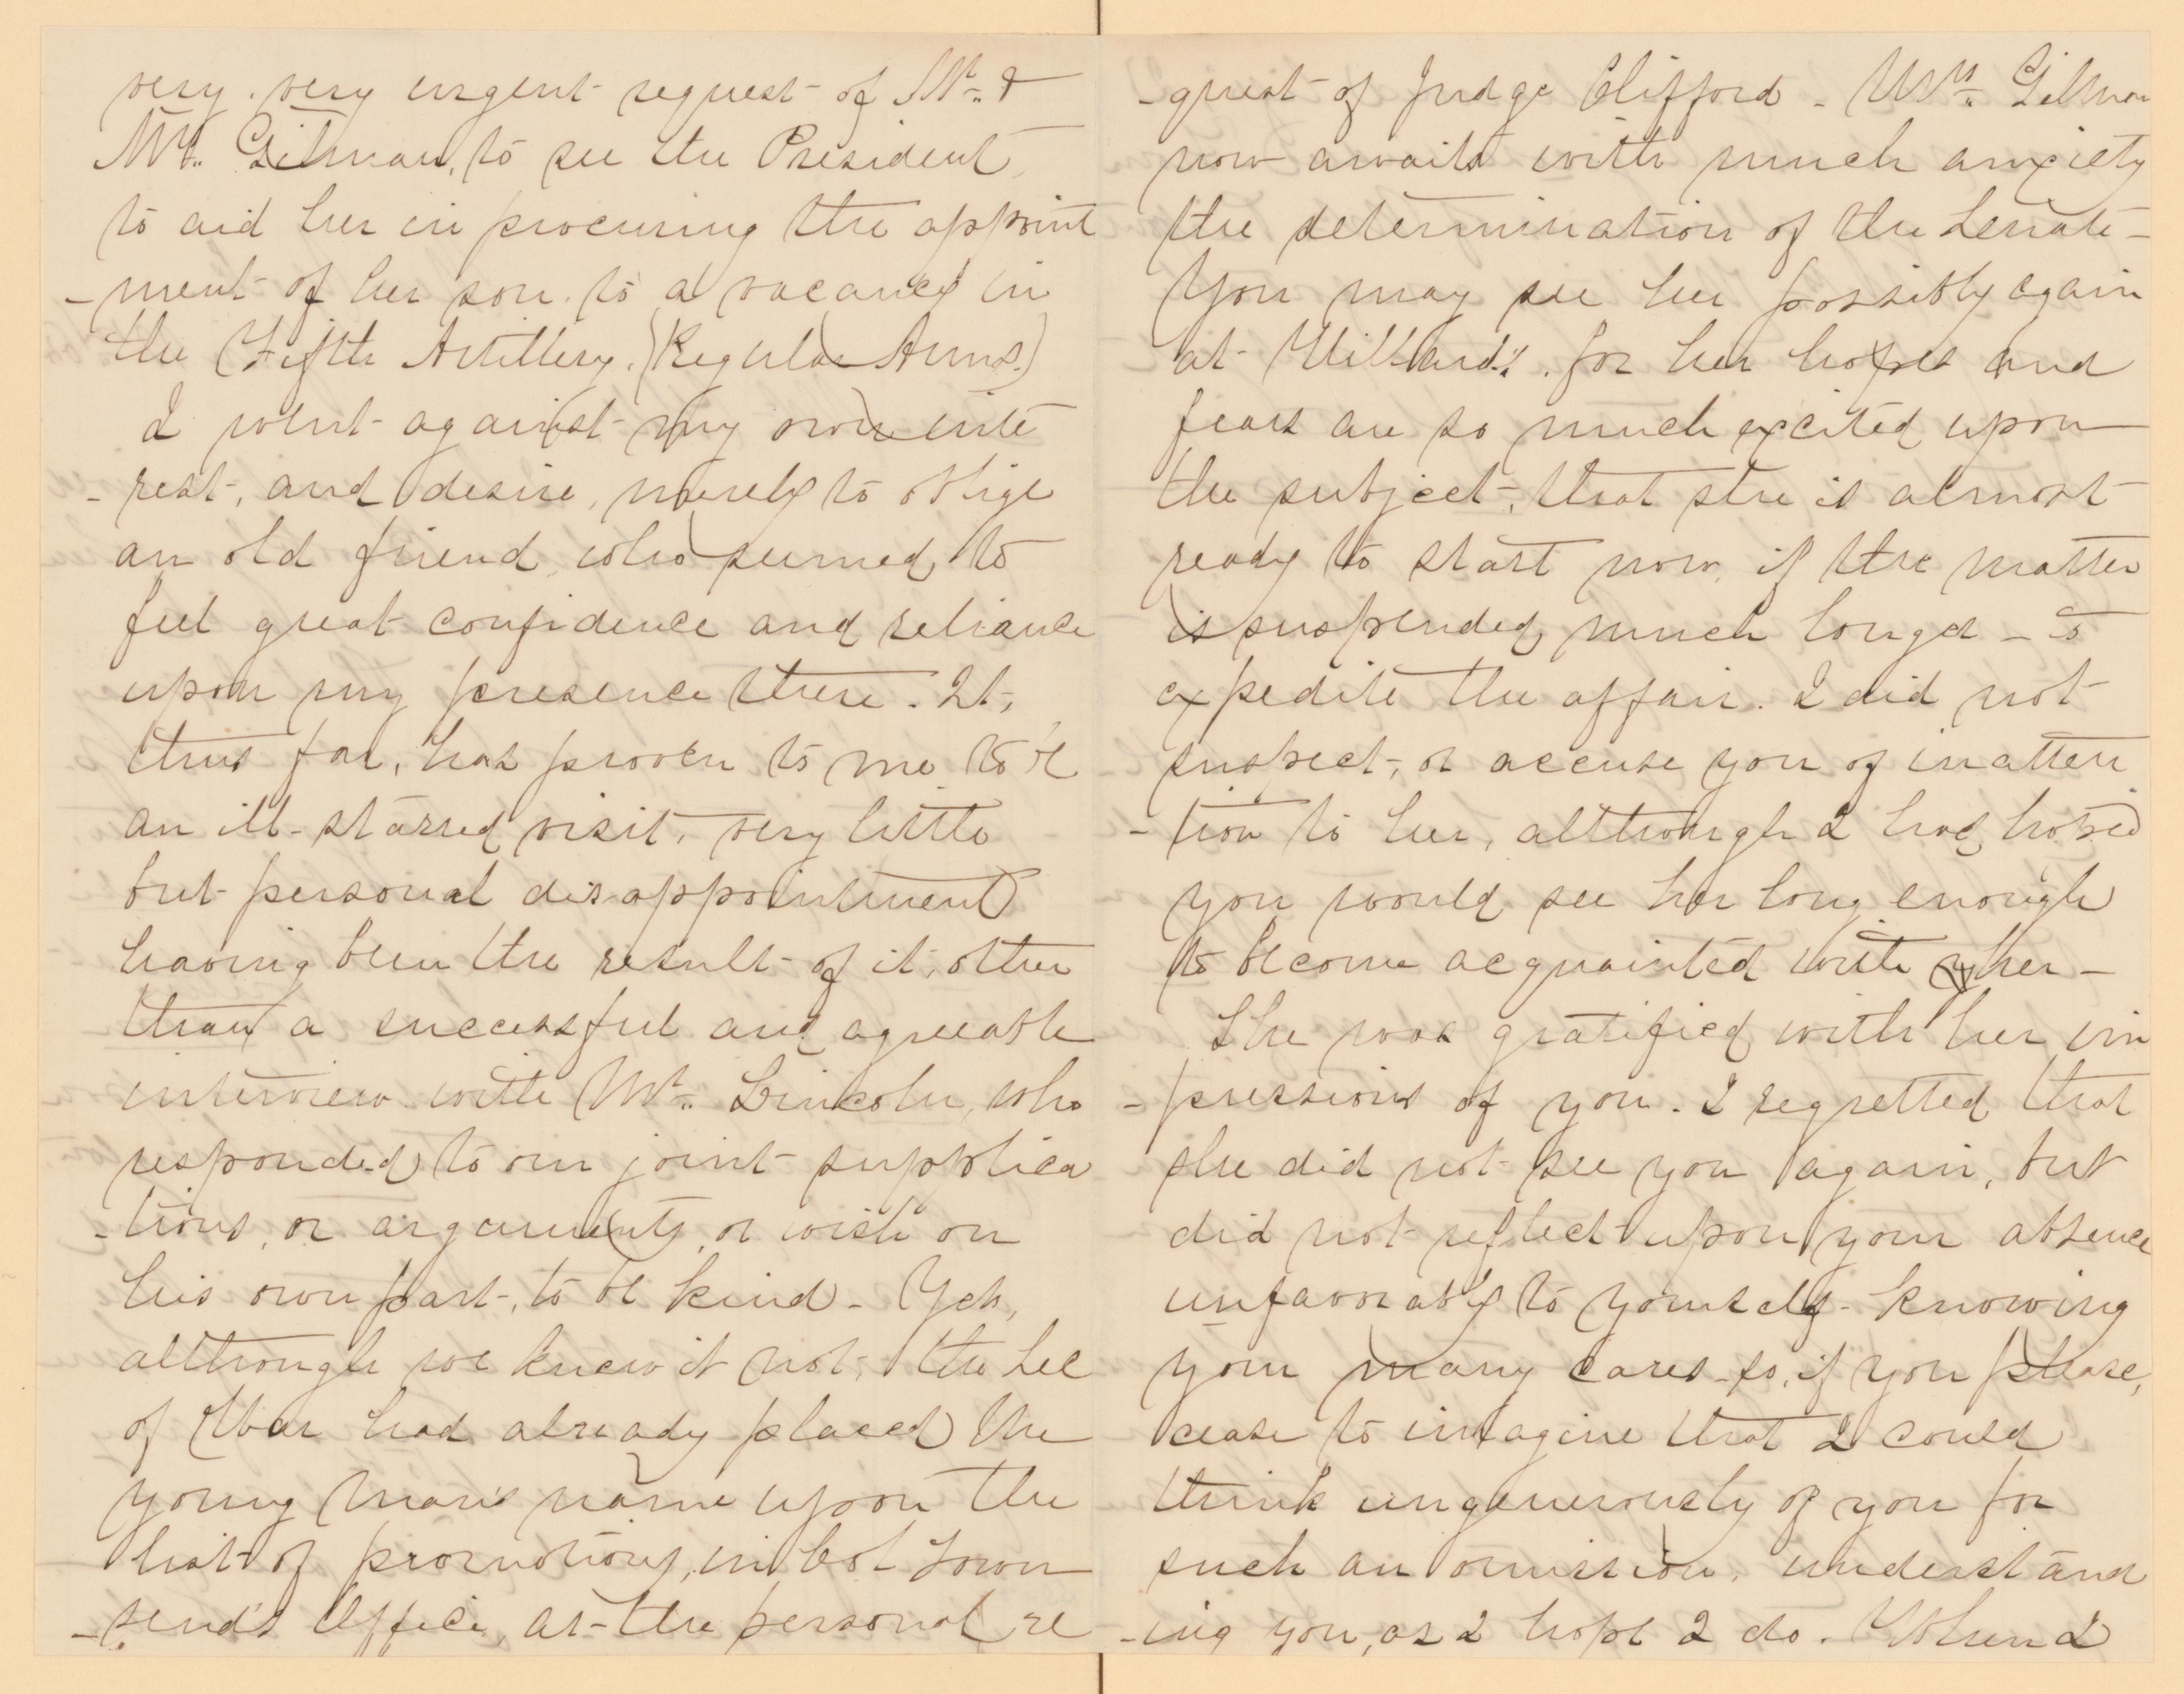 very, very urgent request of Mr. &
Mrs. Gilman, to see the President,
to aid her in procuring the appoint
-ment of her son to a vacancy in
the (Fifth Artillery.) (Regular Army.)
I went against my own inte
-rest, and desire, merely to oblige
an old friend, who seemed to
feel great confidence and reliance
upon my presence there. It,
thus far, has proven to me to be
an ill-starred visit, very little
but personal disappointment
having been the result of it, other
than a successful and agreeable
interview with Mr. Lincoln, who
responded to our joint supplica
-tions, or arguments, or wish on
his own part, to be kind - Yes,
although we knew it not, the Sec
of War had already placed the
young man's name upon the
list of promotions, in Col Town
-send's Office, at the personal re
-quest of Judge Clifford - Mrs. Gilman
now awaits with much anxiety
the determination of the Senate -
You may see her possibly again
at Willard's, for her hopes and
fears are so much excited upon
the subject, that she is almost
ready to start now, if the matter
is suspended much longer - to
expedite the affair. I did not
suspect, or accuse you of inatten
-tion to her, although I had hoped
you would see her long enough
to become acquainted with her -
She was gratified with her im
-pressions of you. I regretted that
she did not see you again, but
did not reflect upon your absence
unfavorably to yourself - knowing
your many cares - so, if you please,
cease to imagine that I could
think ungenerously of you for
such an omission, understand
-ing you, as I hope I do. When I